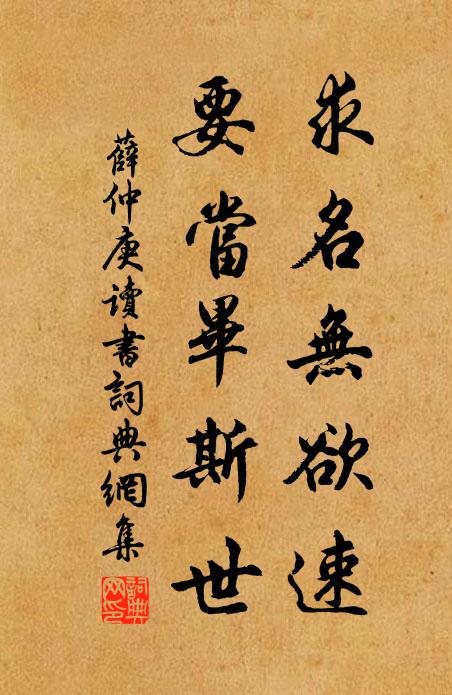 求名無欲速
要當畢斯世
薛仲庚讀書詞典網集
詞典网印